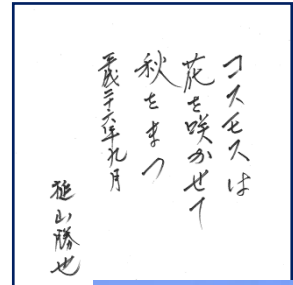 コスモスは
花を咲かせて
秋をまつ
平成二十六年九月
山勝也